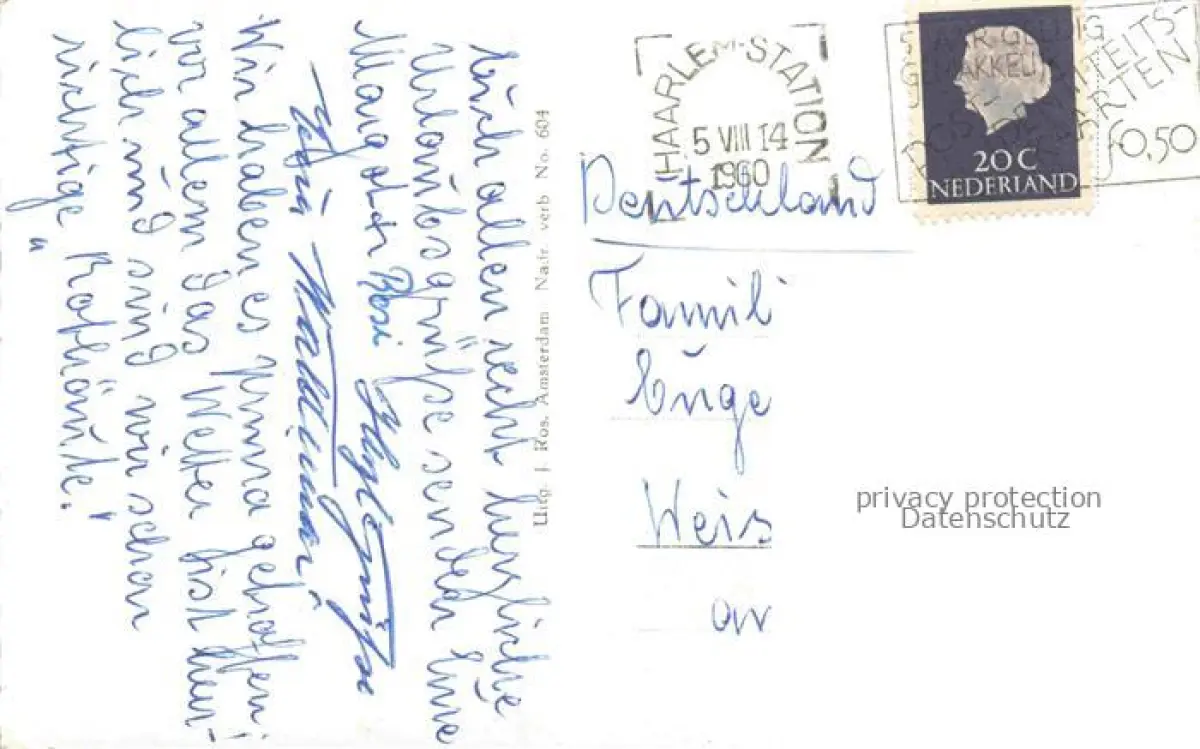 Euch allen recht herzliche
Urlaubsgrüße senden Eure
Margot + Rosi
Wir haben es prima getroffen;
vor allem das Wetter ist herr-
lich und sind wir schon
richtige „Rothäute"!
Uitg. J. Ros. Amsterdam Nadr. verb No. 604
HAARLEM-STATION
5 VIII 14
1960
JAAR GELDIG
GEMAKKELIJK
KAARTEN
f 0,50
20 C
NEDERLAND
Deutschland
Famili
Euge
Weis
privacy protection
Datenschutz